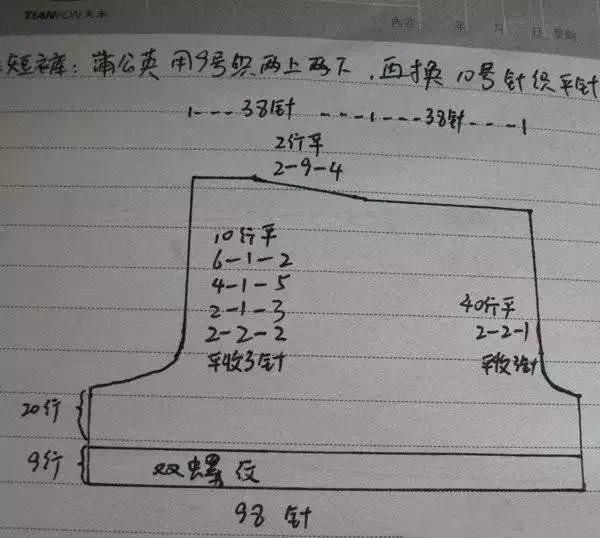 TIANFON天丰
内容 年 月 日 星期
短裤：蒲公英用9号织两上两下，再换10号针织平针
1---38针---1---38针---1
2行平
2-9-4
10行平
6-1-2
4-1-5
2-1-3
2-2-2
平收3针
40行平
2-2-1
平收3针
20行
9行
双螺纹
98针